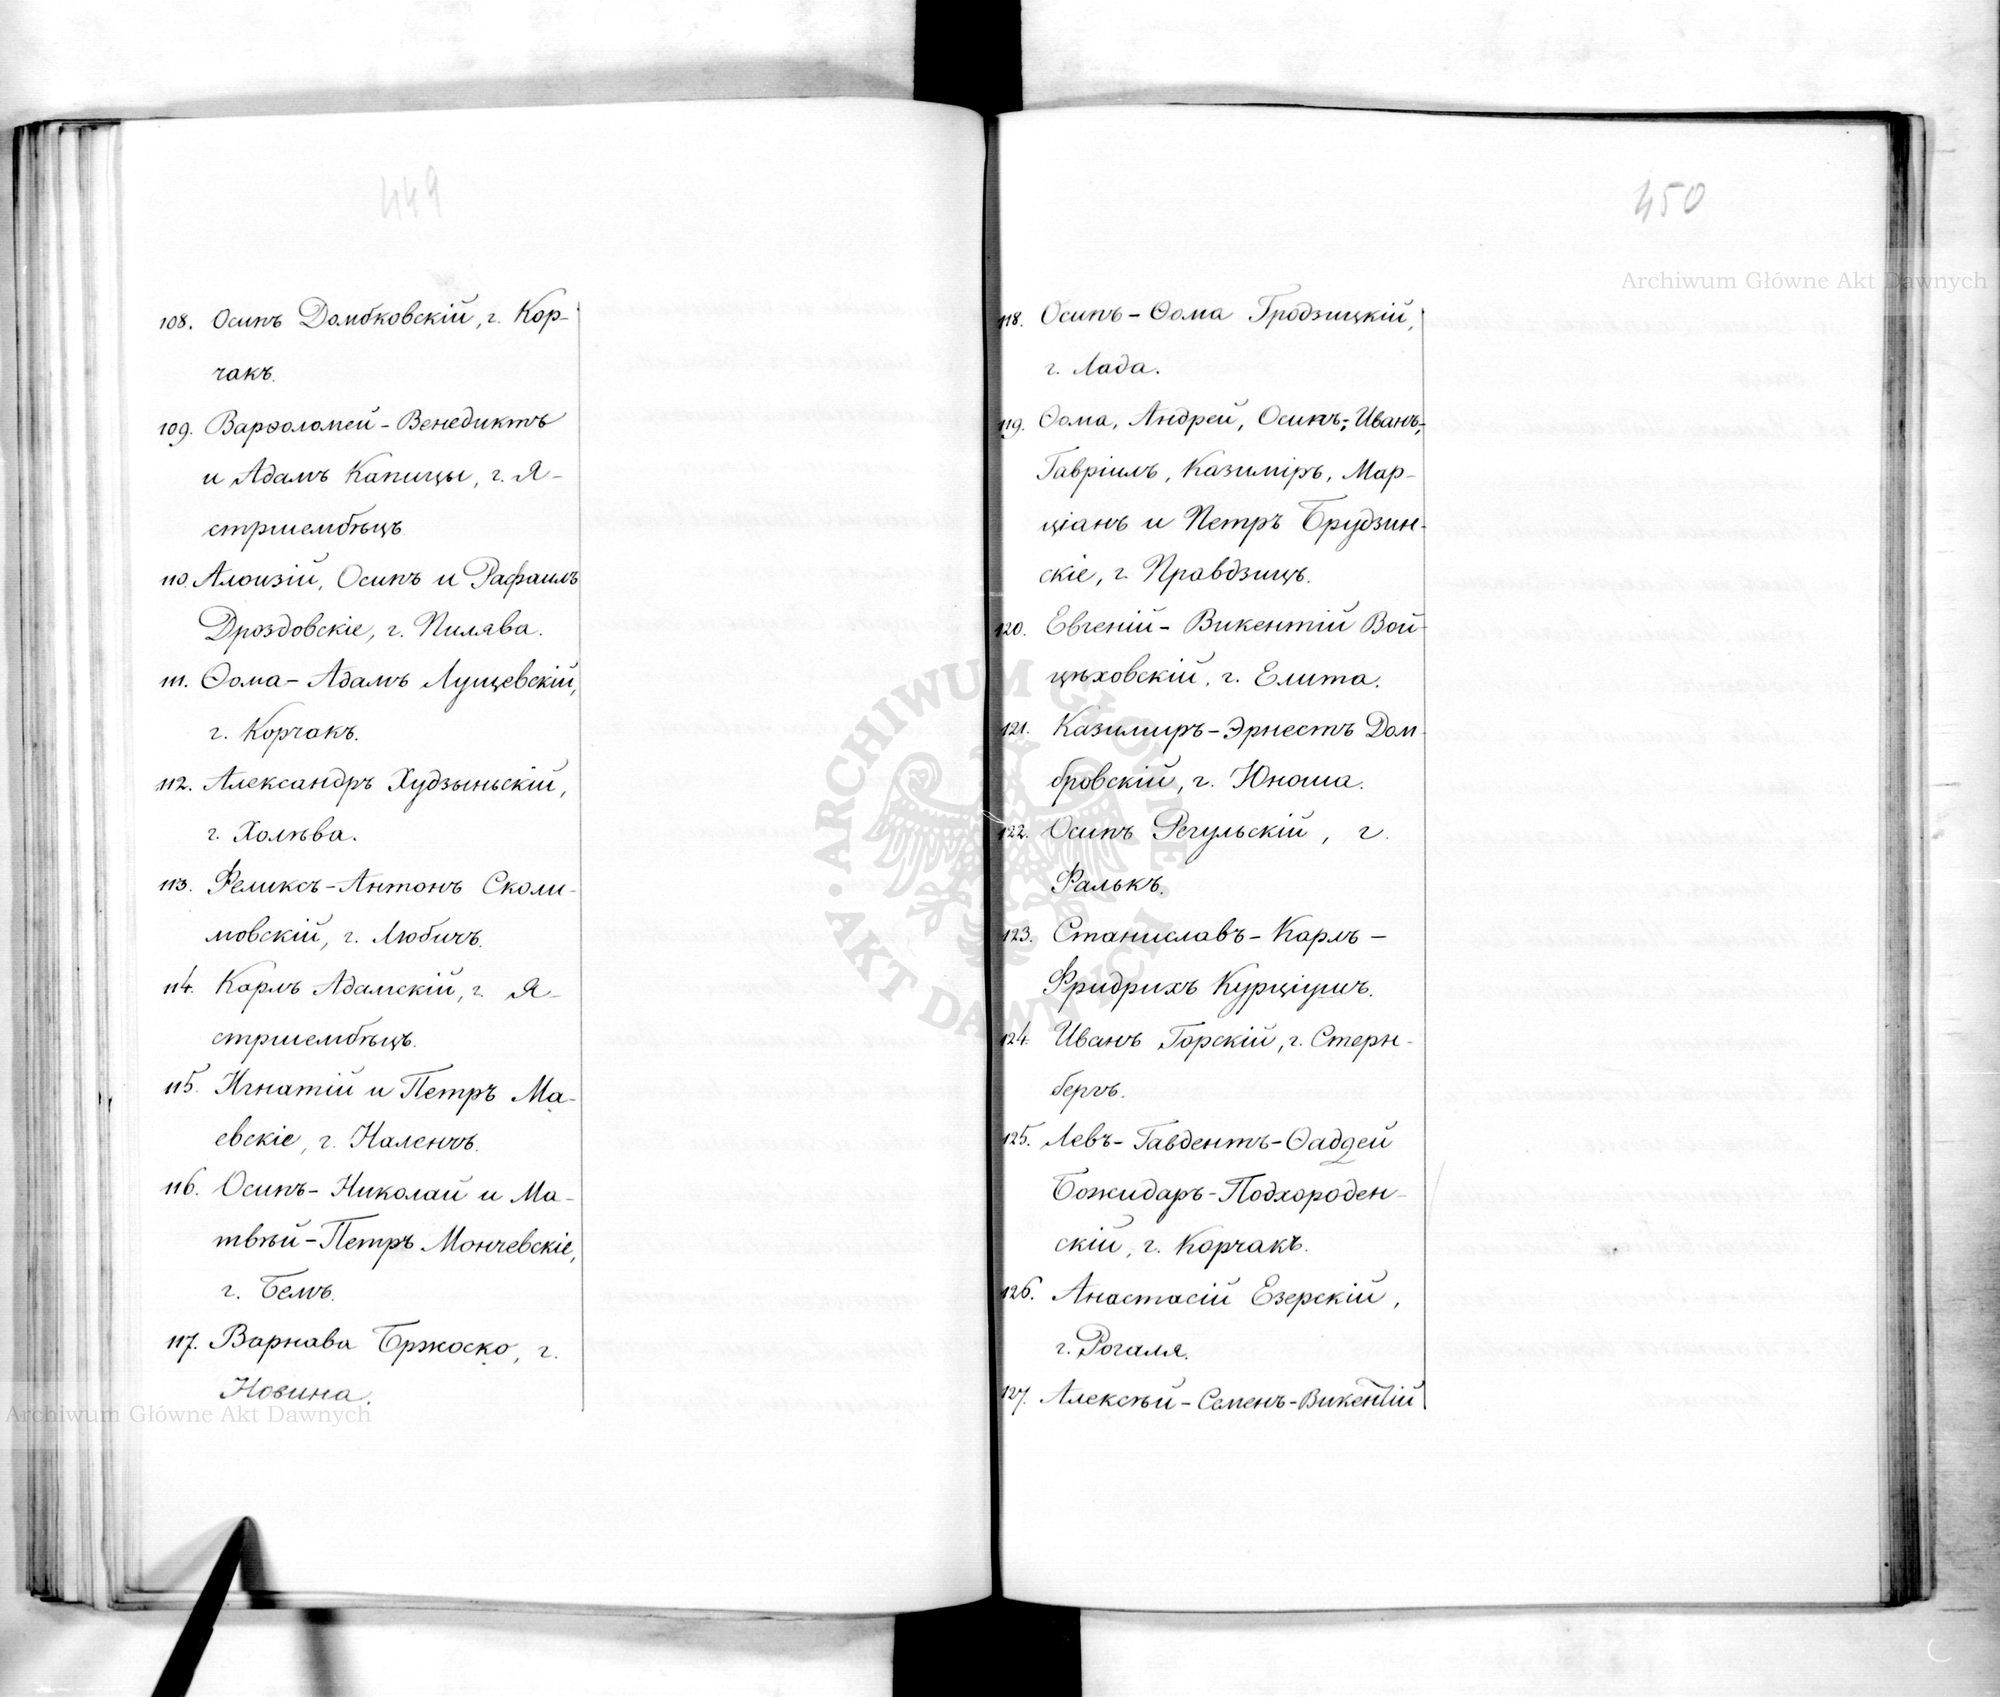 449
108. Осипъ Домбковскій, г. Кор-
чакъ.
109. Варѳоломей-Венедиктъ
и Адамъ Капицы, г. Я-
стршембѣцъ
110. Алоизій, Осипъ и Рафаилъ
Дроздовскіе, г. Пилява.
111. Ѳома-Адамъ Лущевскій,
г. Корчакъ.
112. Александръ Худзыньскій,
г. Холева.
113. Феликсъ-Антонъ Сколи-
мовскій, г. Любичъ.
114. Карлъ Адамскій, г. Я-
стршембѣцъ.
115. Игнатій и Петръ Ма-
евскіе, г. Наленчъ.
116. Осипъ-Николай и Ма-
твѣй-Петръ Мончевскіе,
г. Белчъ.
117. Варнава Бржоско, г.
Новина.
450
118. Осипъ-Ѳома Гродзицкій,
г. Лада.
119. Ѳома, Андрей, Осипъ, Иванъ-
Гавріилъ, Казиміръ, Мар-
ціанъ и Петръ Брудзин-
скіе, г. Правдзицъ.
120. Евгеній-Викентій Вой-
цѣховскій, г. Елита.
121. Казимиръ-Эрнестъ Дом-
бровскій, г. Юноша.
122. Осипъ Регульскій, г.
Фалькъ.
123. Станиславъ-Карлъ-
Фридрихъ Курціушъ.
124. Иванъ Горскій, г. Стерн-
бергъ.
125. Левъ-Гавдентъ-Ѳаддей
Божидаръ-Подхороден-
скій, г. Корчакъ.
126. Анастасій Езерскій,
г. Рогаля.
127. Алексѣй-Семенъ-Викентій
Archiwum Główne Akt Dawnych
Archiwum Główne Akt Dawnych
ARCHIWUM GŁÓWNE AKT DAWNYCH